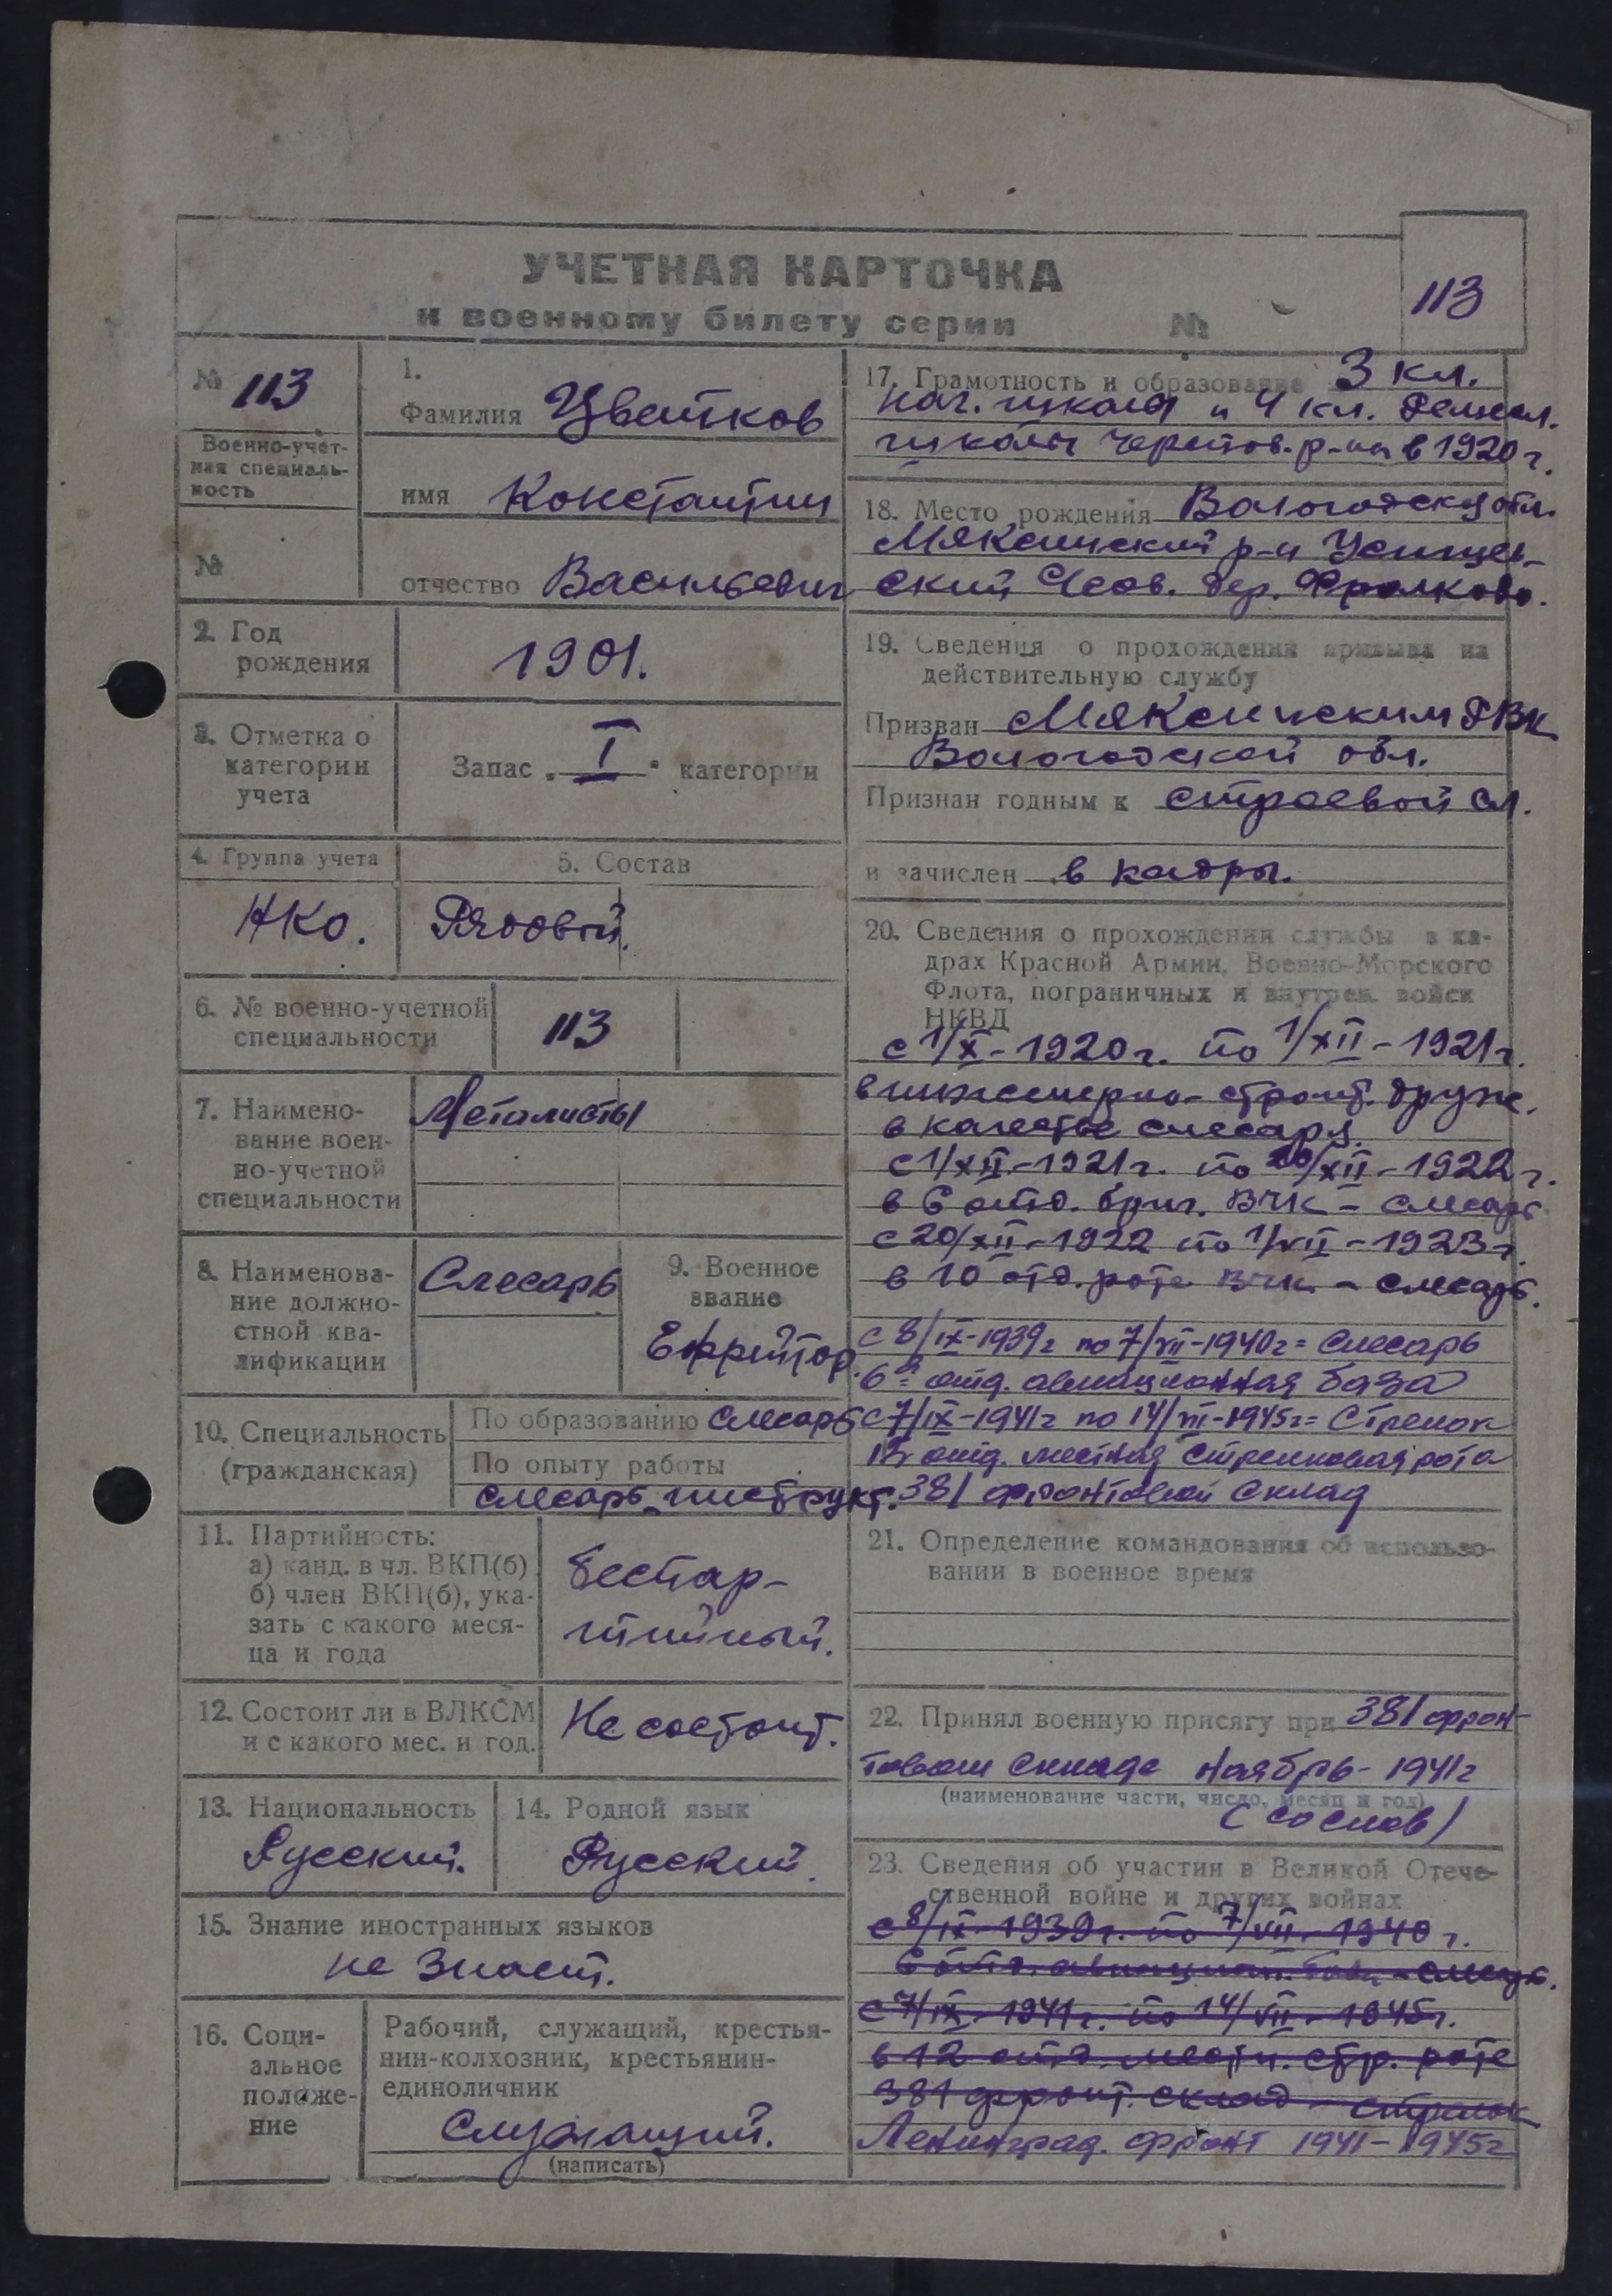 УЧЕТНАЯ КАРТОЧКА
к военному билету серии №
113
№ 113
Военно-учет-
ная специаль-
ность
№
1.
Фамилия Цветков
имя Константин
отчество Васильевич
2. Год
рождения
1901.
3. Отметка о
категории
учета
Запас „ I " категории
4. Группа учета
НКО.
5. Состав
Рядовой.
6. № военно-учетной
специальности
113
7. Наимено-
вание воен-
но-учетной
специальности
Металисты
8. Наименова-
ние должно-
стной ква-
лификации
Слесарь
9. Военное
звание
Ефрейтор.
10. Специальность
(гражданская)
По образованию слесарь
По опыту работы
слесарь-инструкт.
11. Партийность:
а) канд. в чл. ВКП(б)
б) член ВКП(б), ука-
зать с какого меся-
ца и года
беспар-
тийный.
12. Состоит ли в ВЛКСМ
и с какого мес. и год.
Не состоит.
13. Национальность
Русский.
14. Родной язык
Русский.
15. Знание иностранных языков
не знает.
16. Соци-
альное
положе-
ние
Рабочий, служащий, крестья-
нин-колхозник, крестьянин-
единоличник
Служащий.
(написать)
17. Грамотность и образование 3 кл.
нач. школы и 4 кл.
школы Черепов. р-на в 1920 г.
18. Место рождения Вологодск. обл.
Мяксинский р-н
ский С/сов. дер. Фролково.
19. Сведения о прохождении призыва на
действительную службу
Призван Мяксинским РВК
Вологодской обл.
Признан годным к строевой сл.
и зачислен в кадры.
20. Сведения о прохождении службы в ка-
драх Красной Армии, Военно-Морского
Флота, пограничных и внутрен. войск
НКВД
с 1/X-1920г. по 1/XII-1921г.
в инженерно-строит. друж.
в качестве слесаря.
с 1/XII-1921г. по 20/XII-1922г.
в 6 отд. бриг. ВЧК - слесарь
с 20/XII-1922 по 1/VII-1923г.
в 10 отд. роте ВЧК - слесарь.
с 8/IX-1939г по 7/VII-1940г = слесарь
6я отд. авиационная база
с 7/IX-1941г по 14/VII-1945г = Стрелок
12 отд. местная стрелковая рота
381 фронтовой склад
21. Определение командования об использо-
вании в военное время
22. Принял военную присягу при 381 фрон-
товом складе ноябрь - 1941г
(наименование части, число, месяц и год)
(со слов)
23. Сведения об участии в Великой Отече-
ственной войне и других войнах
с 8/IX-1939г. по 7/VII-1940г.
6 отд. авиацион. база - слесарь.
с 7/IX-1941г. по 14/VII-1945г.
в 12 отд. местн. стр. роте
381 фронт. склад - стрелок
Ленинград. фронт 1941-1945г